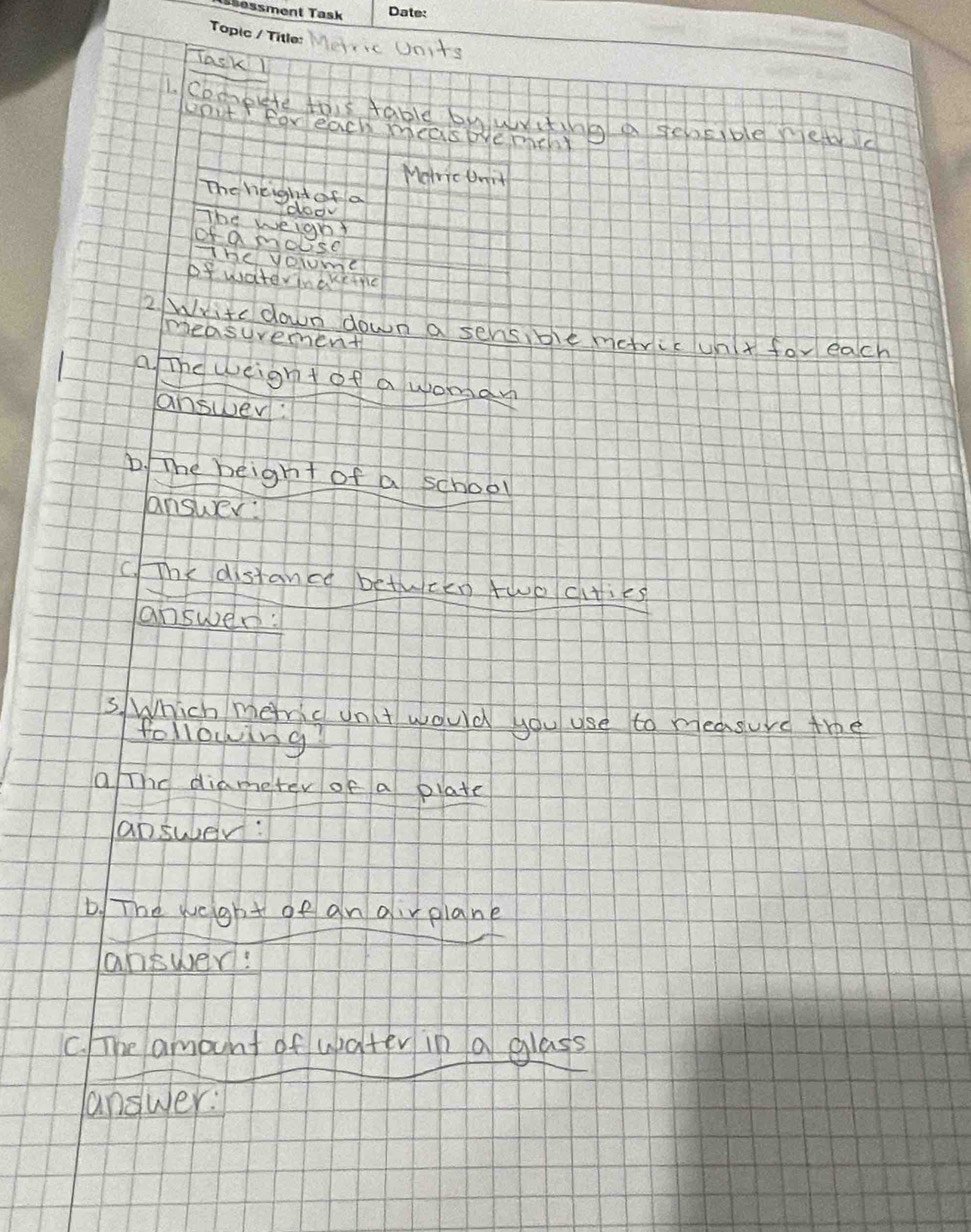 Assessment Task
Date:
Topic / Title: Metric Units
Task 1
1. Complete this table by writing a sensible metric
unit for each measurement
Metric Unit
The height of a
door
The weight
of a mouse
The volume
of water in a kettle
2. Write down down a sensible metric unit for each
measurement
a. The weight of a woman
answer:
b. The height of a school
answer:
c. The distance between two cities
answer:
3. Which metric unit would you use to measure the
following?
a. The diameter of a plate
answer:
b. The weight of an airplane
answer:
c. The amount of water in a glass
answer: